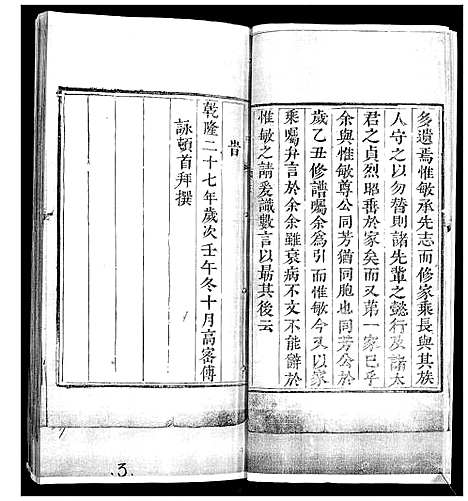 多遺焉惟敏承先志而修家乘長與其族
人守之以勿替則諸先輩之懿行及諸太
君之貞烈昭垂於家矣而又第一家已乎
余與惟敏尊公同芳猶同胞也同芳公於
歲乙丑修譜囑余為引而惟敏今又以家
乘囑弁言於余余雖衰病不文不能辭於
惟敏之請爰識數言以勗其後云
旹
乾隆二十七年歲次壬午冬十月高密傅
詠頓首拜撰
3.